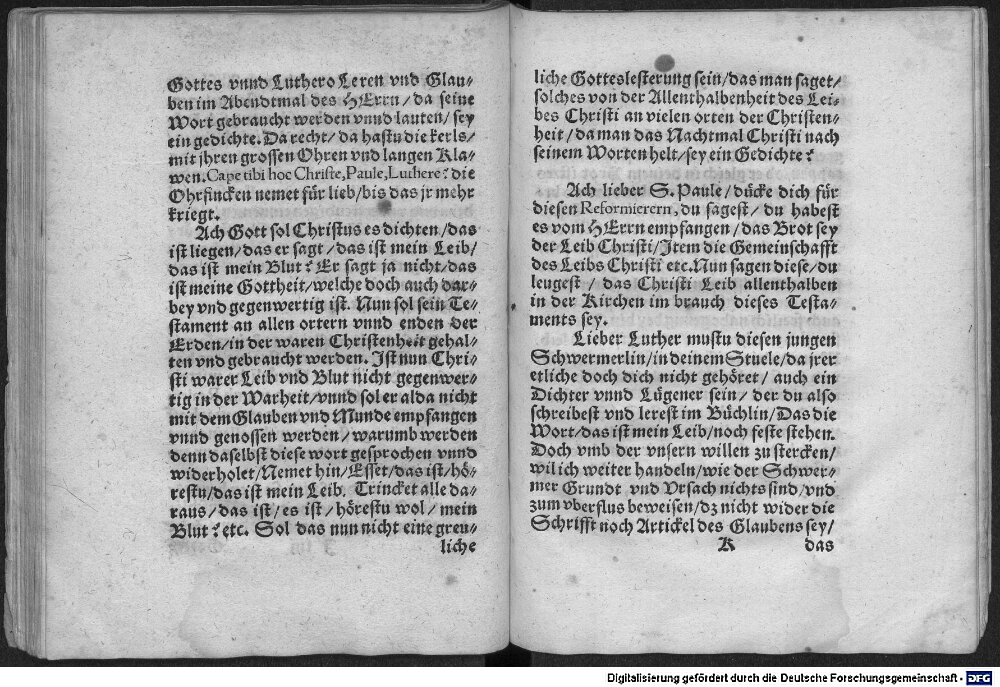 Gottes vnnd Luthero Leren vnd Glau-
ben im Abendtmal des HErrn/da seine
Wort gebraucht werden vnnd lauten/sey
ein gedichte. Da recht/da hastu die kerls/
mit jhren grossen Ohren vnd langen Kla-
wen. Cape tibi hoc Christe, Paule, Luthere? die
Ohrfincken nemet für lieb/bis das jr mehr
kriegt.
Ach Gott sol Christus es dichten/das
ist liegen/das er sagt/das ist mein Leib/
das ist mein Blut? Er sagt ja nicht/das
ist meine Gottheit/welche doch auch dar-
bey vnd gegenwertig ist. Nun sol sein Te-
stament an allen ortern vnnd enden der
Erden/in der waren Christenheit gehal-
ten vnd gebraucht werden. Ist nun Chri-
sti warer Leib vnd Blut nicht gegenwer-
tig in der Warheit/vnnd sol er alda nicht
mit dem Glauben vnd Munde empfangen
vnnd genossen werden/warumb werden
denn daselbst diese wort gesprochen vnnd
widerholet/Nemet hin/Esset/das ist/hö-
restu/das ist mein Leib. Trincket alle da-
raus/das ist/es ist/hörestu wol/mein
Blut? etc. Sol das nun nicht eine greu-
liche
liche Gotteslesterung sein/das man saget/
solches von der Allenthalbenheit des Lei-
bes Christi an vielen orten der Christen-
heit/da man das Nachtmal Christi nach
seinem Worten helt/sey ein Gedichte?
Ach lieber S. Paule/dücke dich für
diesen Reformierern, du sagest/du habest
es vom HErrn empfangen/das Brot sey
der Leib Christi/Item die Gemeinschafft
des Leibs Christi etc. Nun sagen diese/du
leugest/das Christi Leib allenthalben
in der Kirchen im brauch dieses Testa-
ments sey.
Lieber Luther mustu diesen jungen
Schwermerlin/in deinem Stuele/da jrer
etliche doch dich nicht gehöret/auch ein
Dichter vnnd Lügener sein/der du also
schreibest vnd lerest im Büchlin/Das die
Wort/das ist mein Leib/noch feste stehen.
Doch vmb der vnsern willen zu stercken/
wil ich weiter handeln/wie der Schwer-
mer Grundt vnd Vrsach nichts sind/vnd
zum vberflus beweisen/dz nicht wider die
Schrifft noch Artickel des Glaubens sey/
K das
Digitalisierung gefördert durch die Deutsche Forschungsgemeinschaft - DFG